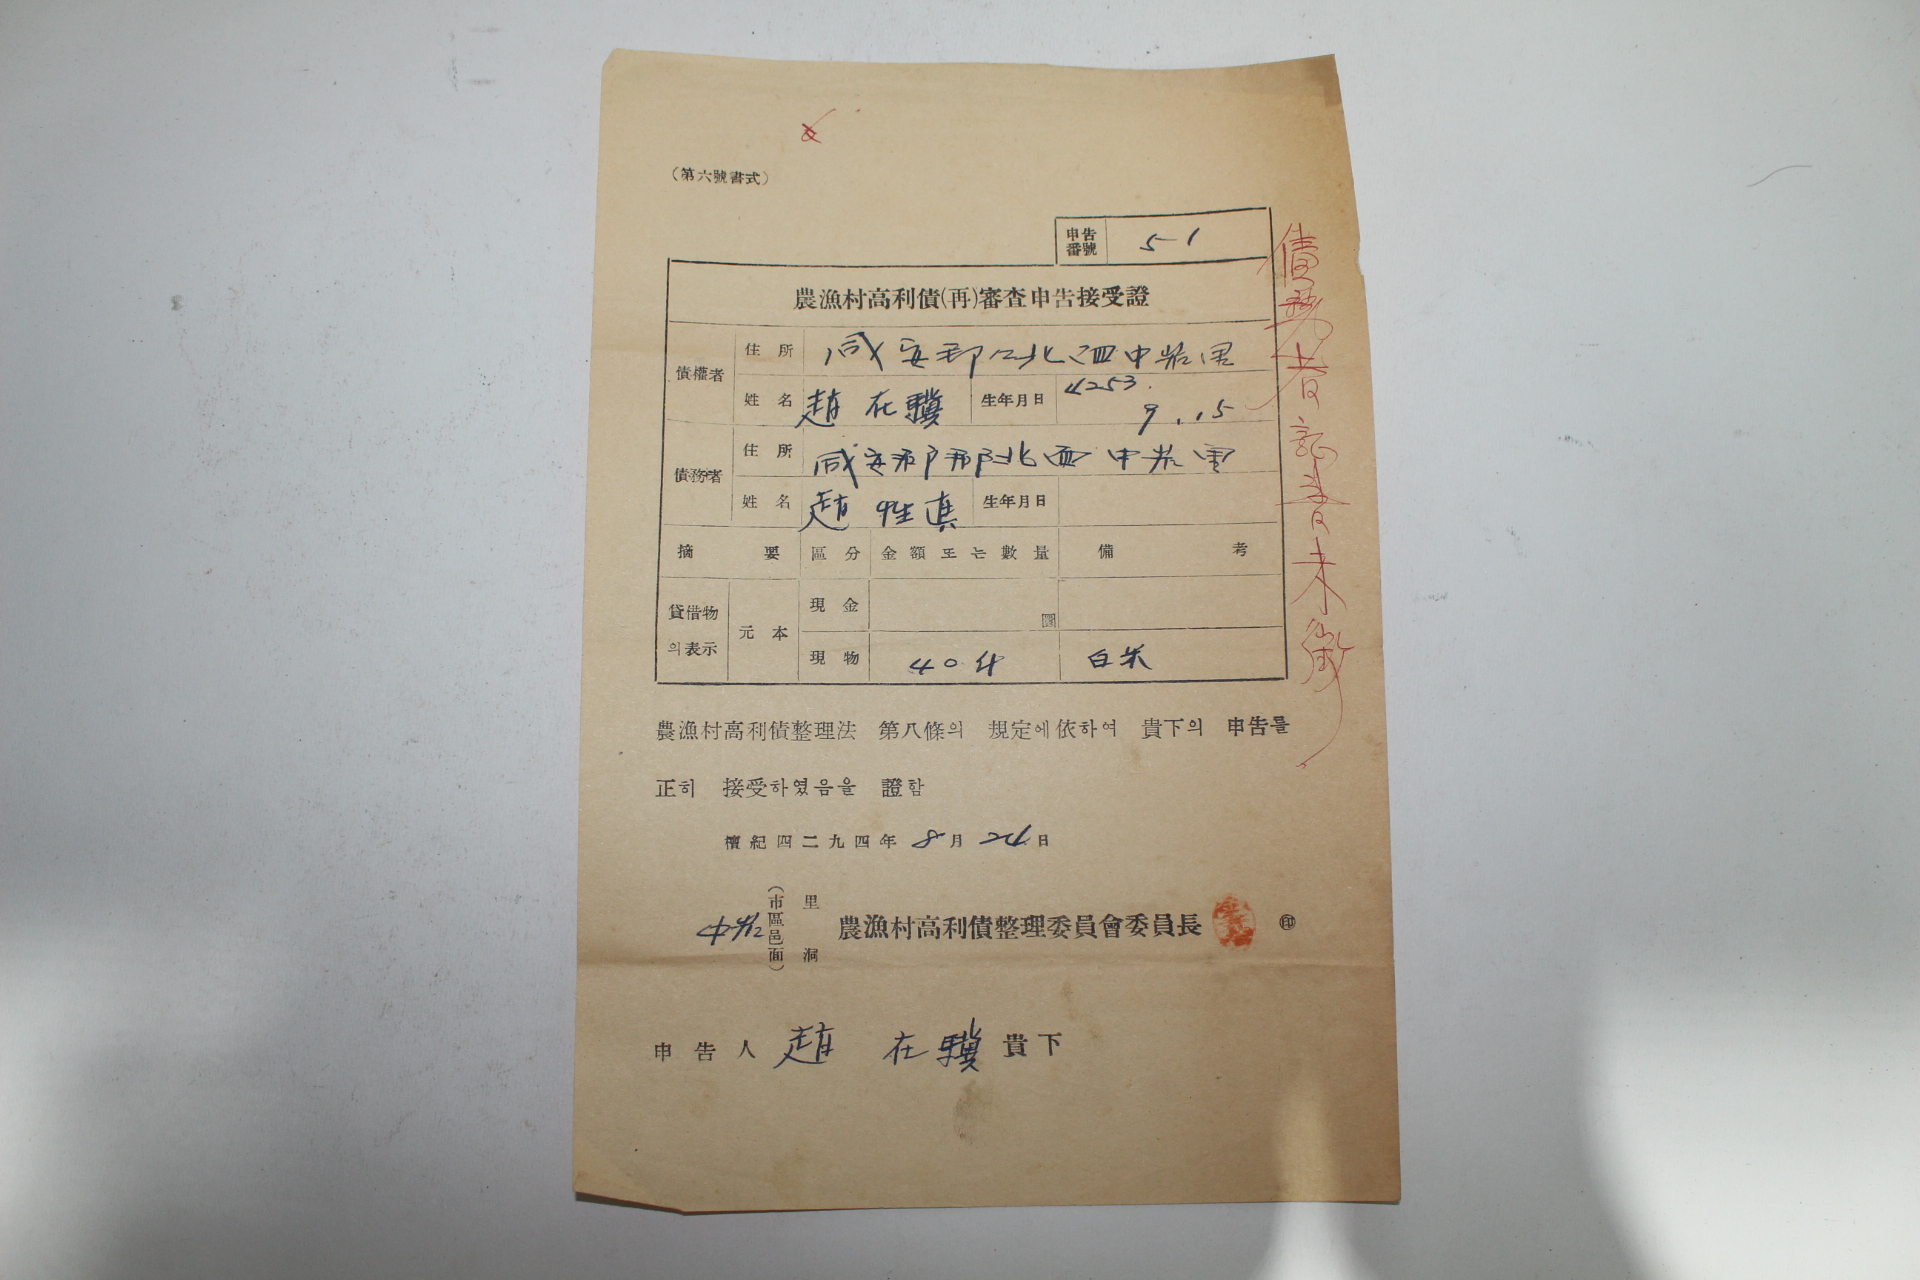 (第六號書式)
申告番號 5-1
農漁村高利債(再)審査申告接受證
債權者 住所 咸安郡 北面中岩里
姓名 趙在驥 生年月日 4253. 9.15
債務者 住所 咸安郡郡北面中岩里
姓名 趙性眞 生年月日
摘要 區分 金額또는數量 備考
貸借物의表示 元本 現金 圜
現物 40斗 白米
農漁村高利債整理法 第八條의 規定에依하여 貴下의 申告를
正히 接受하였음을 證함
檀紀四二九四年 8月 24日
中岩 (市區邑面) 里洞 農漁村高利債整理委員會委員長 ㊞
申告人 趙在驥 貴下
債務者